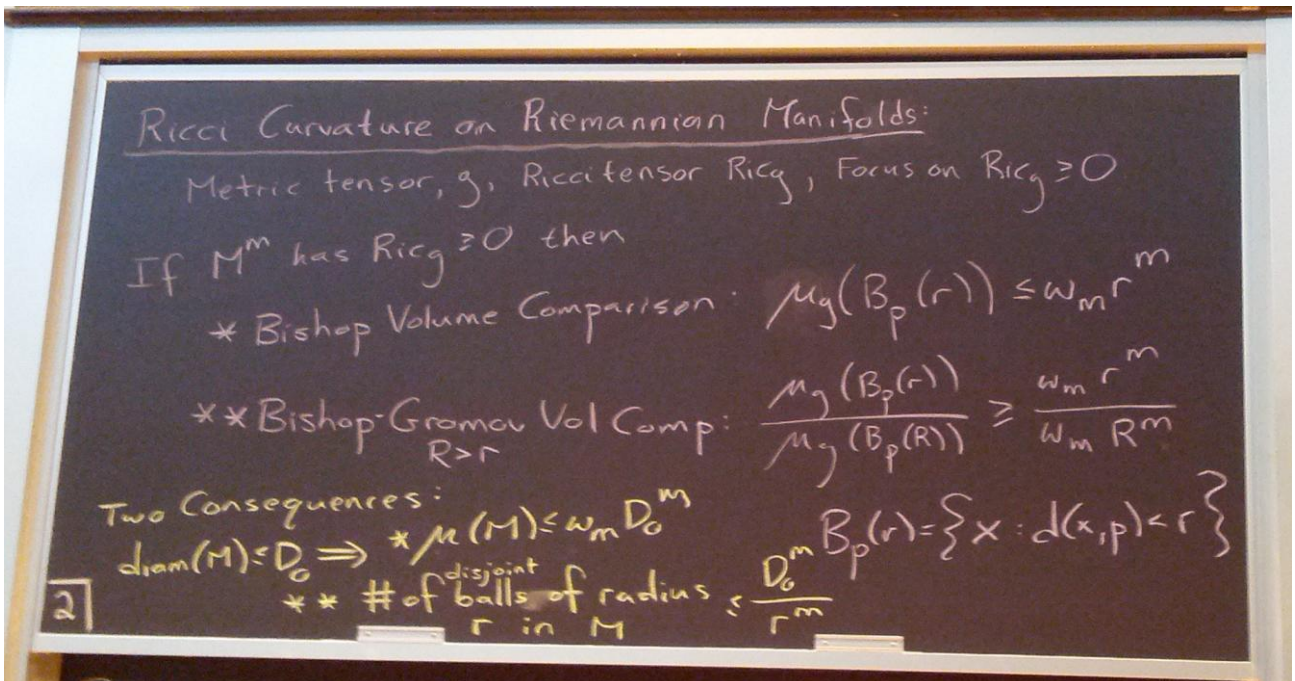 Ricci Curvature on Riemannian Manifolds:
Metric tensor, g, Ricci tensor Ric_g, Focus on Ric_g ≥ 0
If M^m has Ric_g ≥ 0 then
* Bishop Volume Comparison: μ_g(B_p(r)) ≤ ω_m r^m
** Bishop-Gromov Vol Comp: μ_g(B_p(r)) / μ_g(B_p(R)) ≥ ω_m r^m / ω_m R^m
R>r
Two Consequences:
B_p(r)={x : d(x,p)<r}
diam(M) ≤ D_0 ⇒ * μ(M) ≤ ω_m D_0^m
** # of disjoint balls of radius r in M ≤ D_0^m / r^m
2